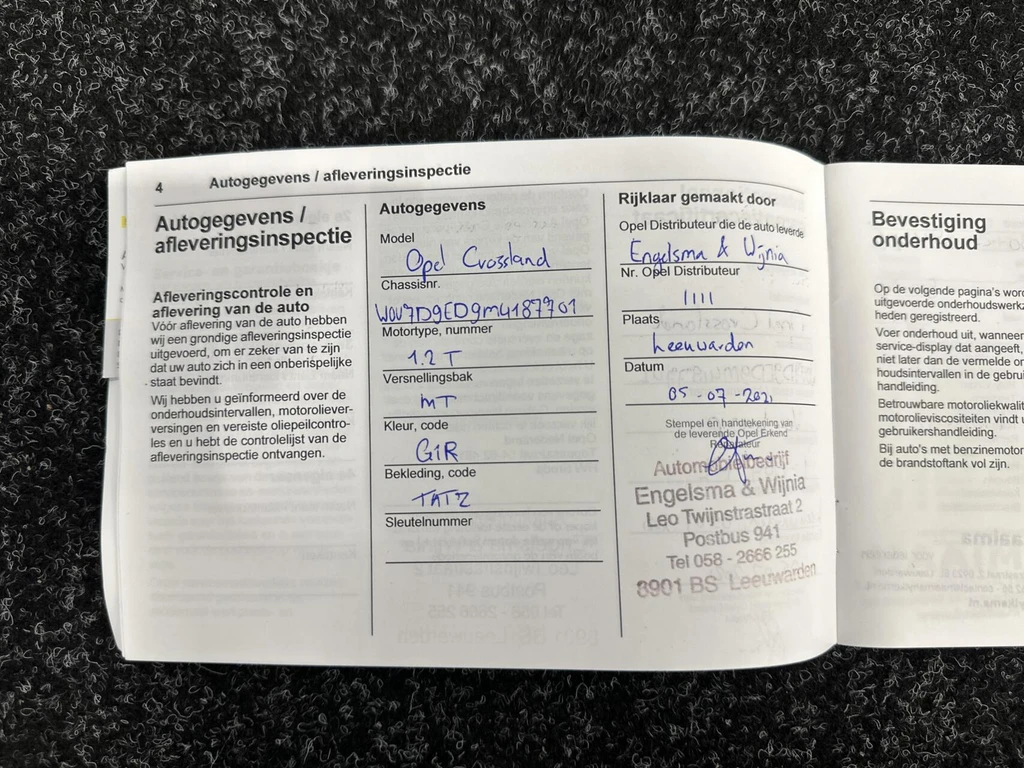 4 Autogegevens / afleveringsinspectie
Autogegevens /
afleveringsinspectie
Afleveringscontrole en
aflevering van de auto
Vóór aflevering van de auto hebben
wij een grondige afleveringsinspectie
uitgevoerd, om er zeker van te zijn
dat uw auto zich in een onberispelijke
staat bevindt.
Wij hebben u geïnformeerd over de
onderhoudsintervallen, motoroliever-
versingen en vereiste oliepeilcontro-
les en u hebt de controlelijst van de
afleveringsinspectie ontvangen.
Autogegevens
Model
Opel Crossland
Chassisnr.
W0V7D9ED9M4187701
Motortype, nummer
1.2 T
Versnellingsbak
MT
Kleur, code
G1R
Bekleding, code
TATZ
Sleutelnummer
Rijklaar gemaakt door
Opel Distributeur die de auto leverde
Engelsma & Wijnia
Nr. Opel Distributeur
1111
Plaats
Leeuwarden
Datum
05-07-2021
Stempel en handtekening van
de leverende Opel Erkend
Reparateur
Automobielbedrijf
Engelsma & Wijnia
Leo Twijnstrastraat 2
Postbus 941
Tel 058 - 2666 255
8901 BS Leeuwarden
Bevestiging
onderhoud
Op de volgende pagina's
uitgevoerde
heden geregistreerd.
Voer onderhoud uit, wanneer
service-display dat aangeeft,
niet later dan de vermelde
houdsintervallen in de
handleiding.
Betrouwbare
motorolieviscositeiten vindt
gebruikershandleiding.
Bij auto's met
de brandstoftank vol zijn.